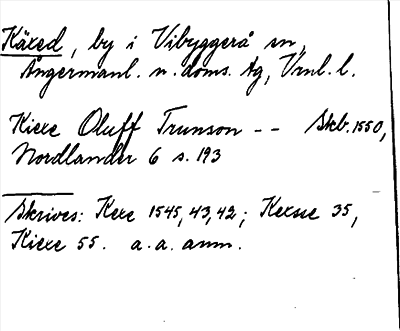 Käxed, by i Vibyggerå sn,
Ångermanl. n. doms. tg, Vrnl. l.
Kiexe Oluff Trunson -- Skb. 1550,
Nordlander 6 s. 193
Skrives: Kexe 1545, 43, 42; Kexsse 35,
Kiexe 55. a. a. anm.